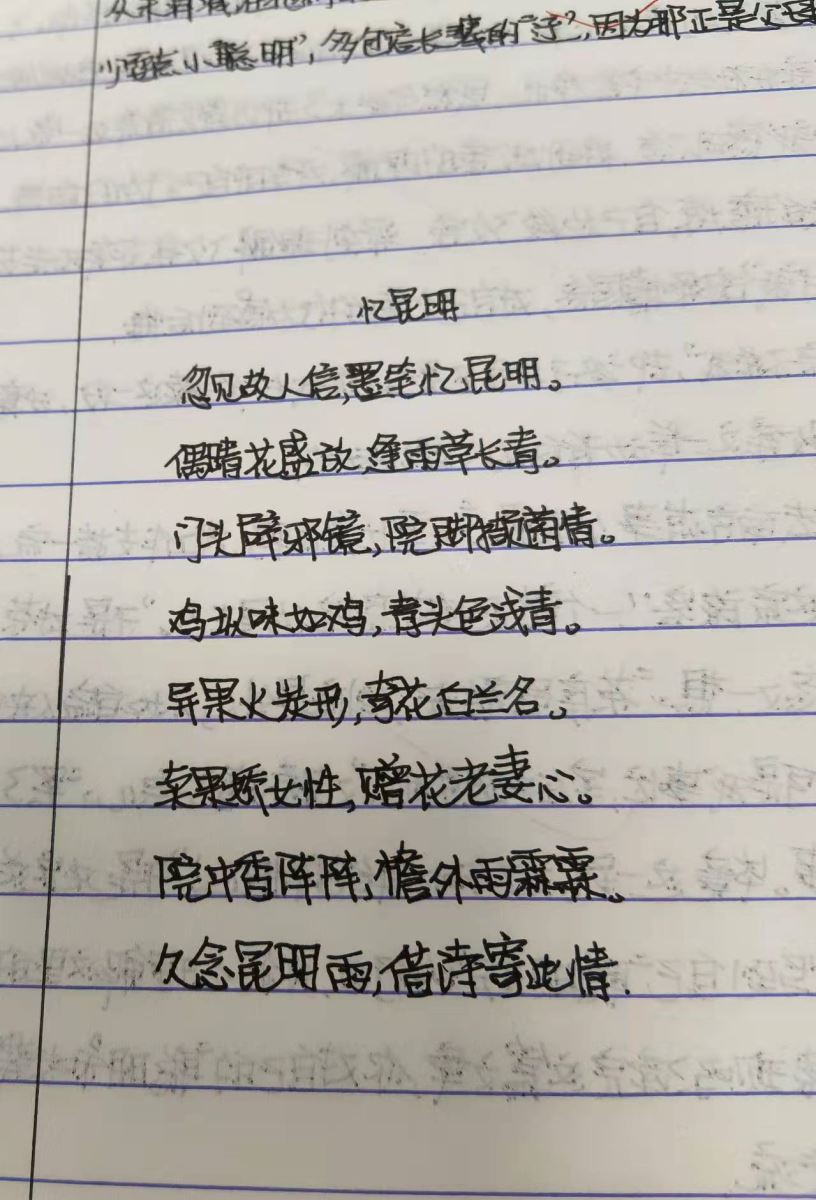 少耍点小聪明”,多包容长辈的“过”,因为那正是
忆昆明
忽见故人信,墨笔忆昆明。
偶晴花盛放,逢雨草长青。
门头辟邪镜,院脚撷菌情。
鸡枞味如鸡,青头色浅青。
异果火炭形,奇花白兰名。
卖果娇女性,赠花老妻心。
院中香阵阵,檐外雨霖霖。
久念昆明雨,借诗寄此情.